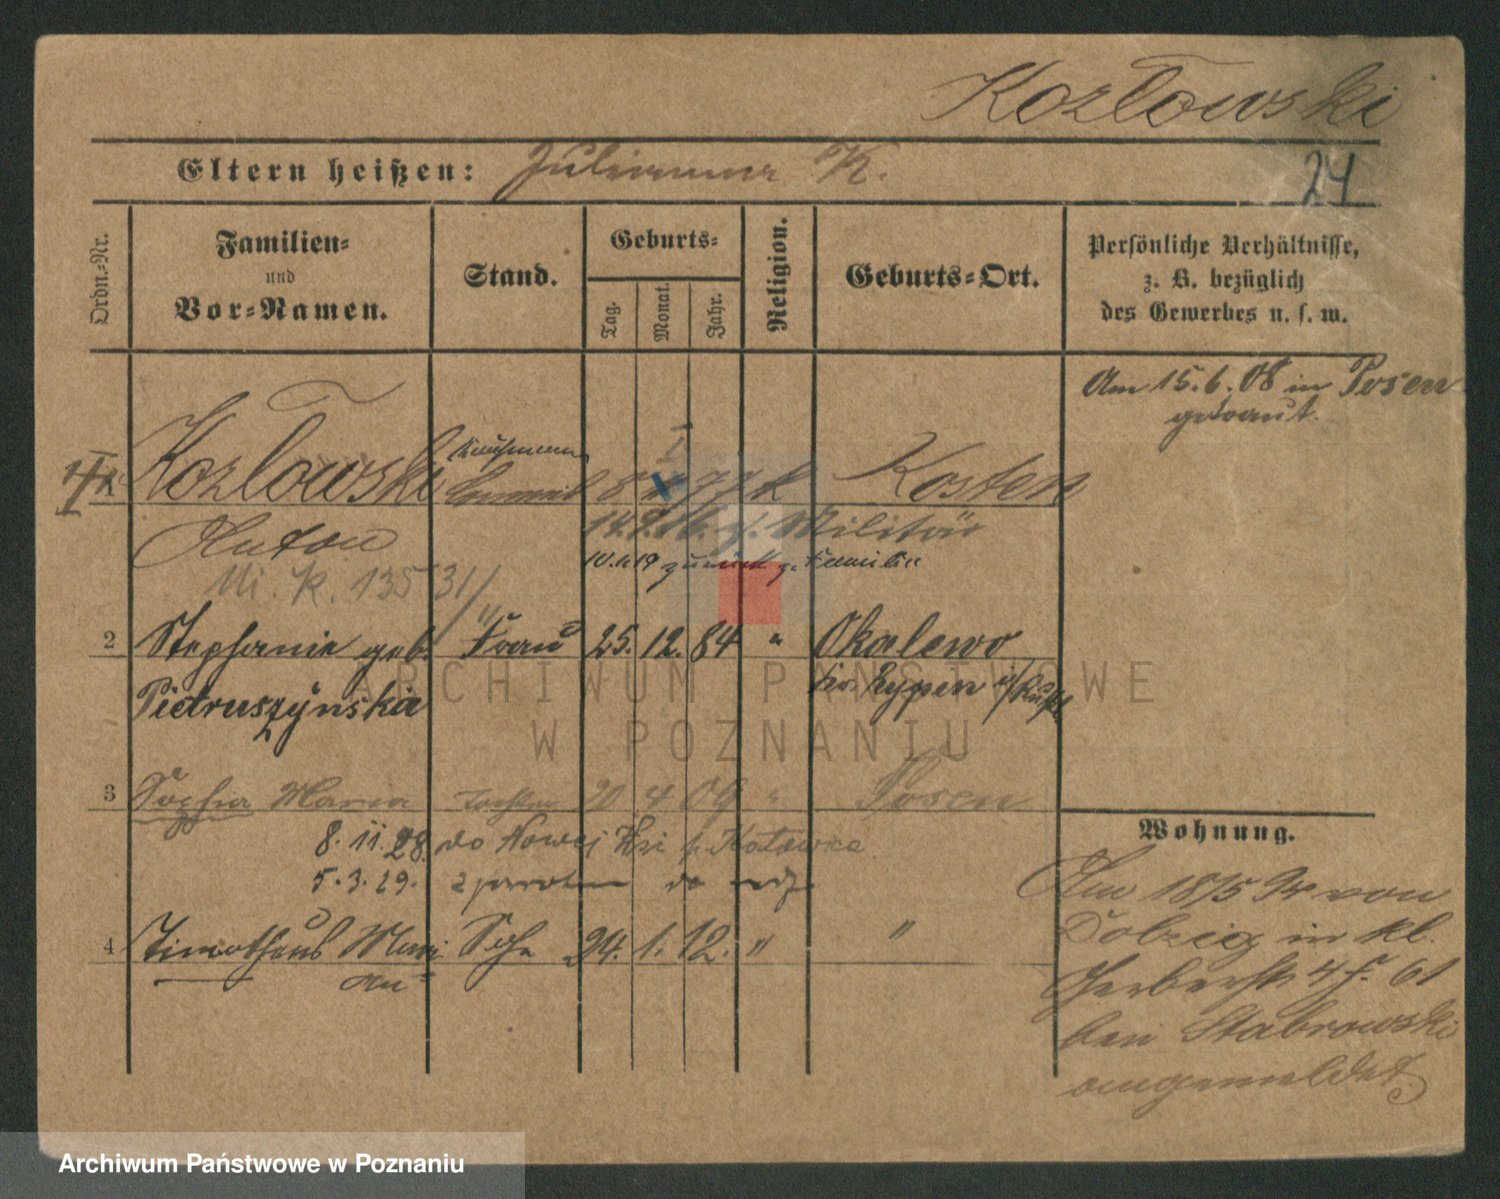 Kozłowski
Eltern heißen: K.
24
Ordn.-Nr.
Familien- und Vor-Namen.
Stand.
Geburts-
Tag.
Monat.
Jahr.
Religion.
Geburts-Ort.
Persönliche Verhältnisse,
z. B. bezüglich
des Gewerbes u. s. w.
Am 15.6.08 in Posen
getraut.
Kozłowski Kaufmann 8 77 k Kosten
Anton Militär
10.1.19 zurück z. Familie
Mi. K. 135 31/11
2 Stephanie geb. Frau 25. 12. 84 " Okalewo
Pietruszyńska Kr. Rypin
3 Sophia Maria Tochter 20 4 09 " Posen
8.11.28. do Nowej Wsi p. Katowice
5.3.29. z powrotem do
4 Timotheus Mari Sohn 24. 1. 12. " "
an
Wohnung.
Am 18/5 von
Dolzig in kl.
Gerberstr 4 61
bei Stabrowski
angemeldet.
ARCHIWUM PAŃSTWOWE
W POZNANIU
Archiwum Państwowe w Poznaniu